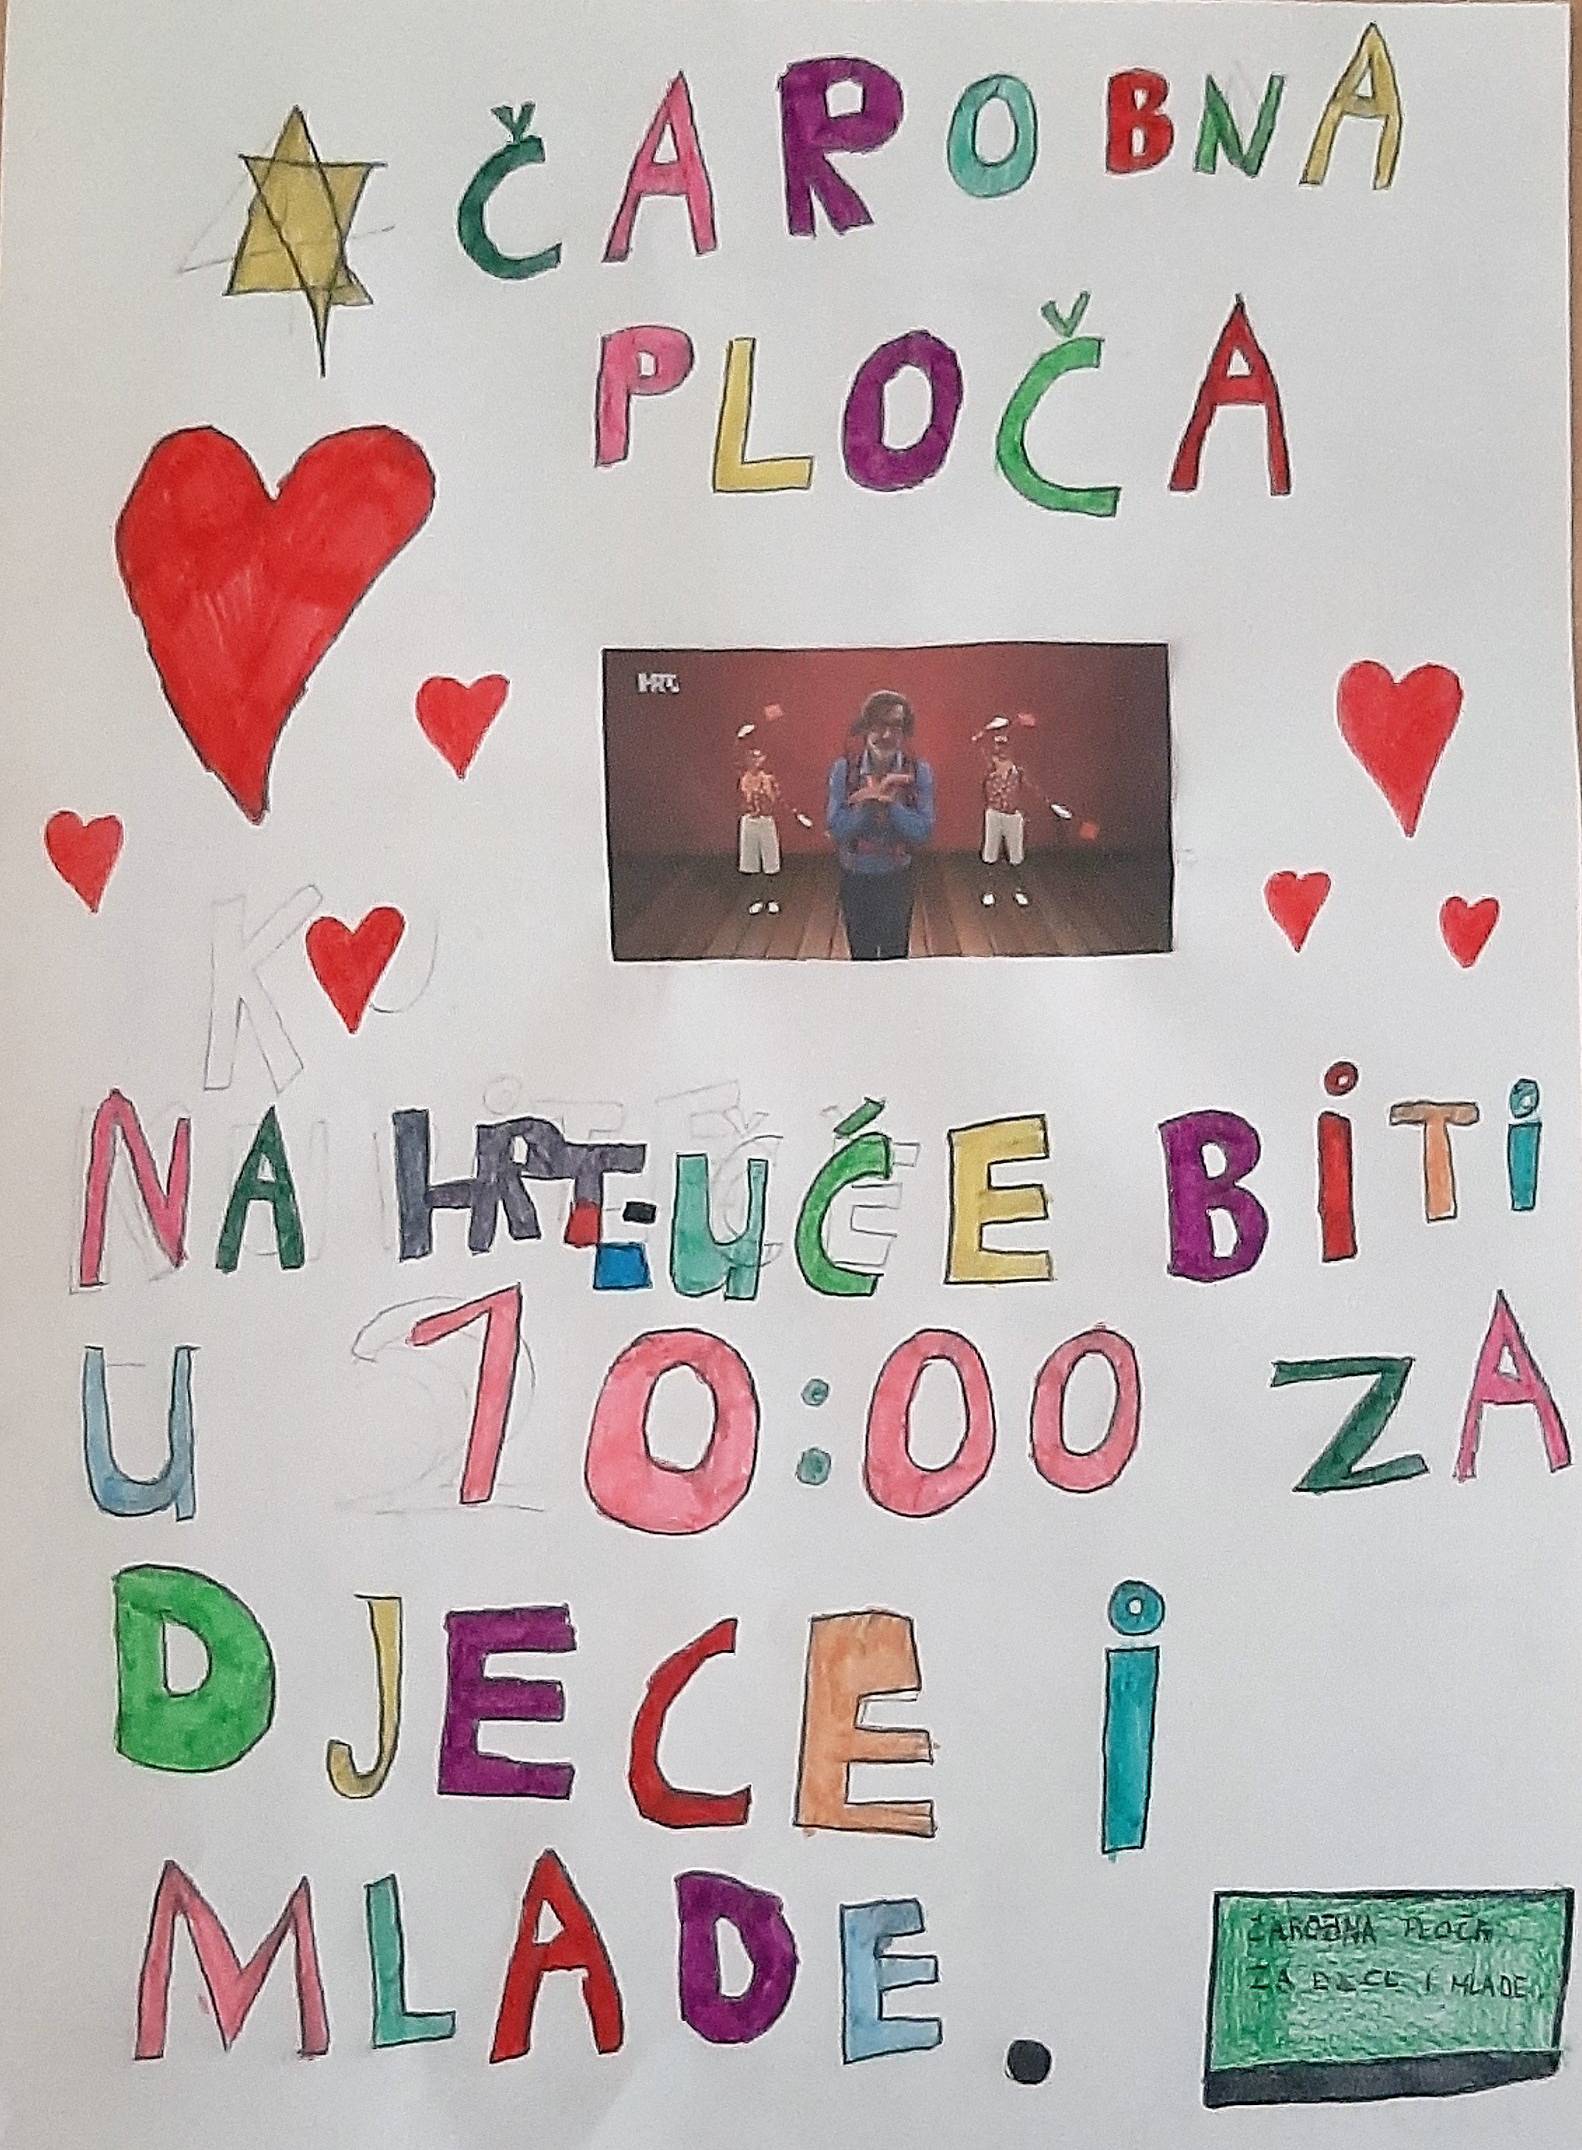 ČAROBNA
PLOČA
HRT
NA HRT-U ĆE BITI
U 10:00 ZA
DJECE I
MLADE.
ČAROBNA PLOČA
ZA DJECE I MLADE.